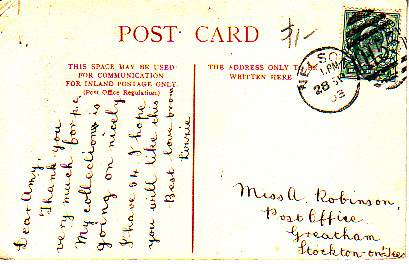 POST CARD
3/-
THIS SPACE MAY BE USED
FOR COMMUNICATION
FOR INLAND POSTAGE ONLY
(Post Office Regulation)
THE ADDRESS ONLY TO BE
WRITTEN HERE
NELSON
1.PM
28 SP
03
Dear Amy,
Thank you
very much for p.c.
My collection is
going on nicely
I have 54. I hope
you will like this
Best love from
Miss A. Robinson,
Post Office
Greatham
Stockton-on-Tees